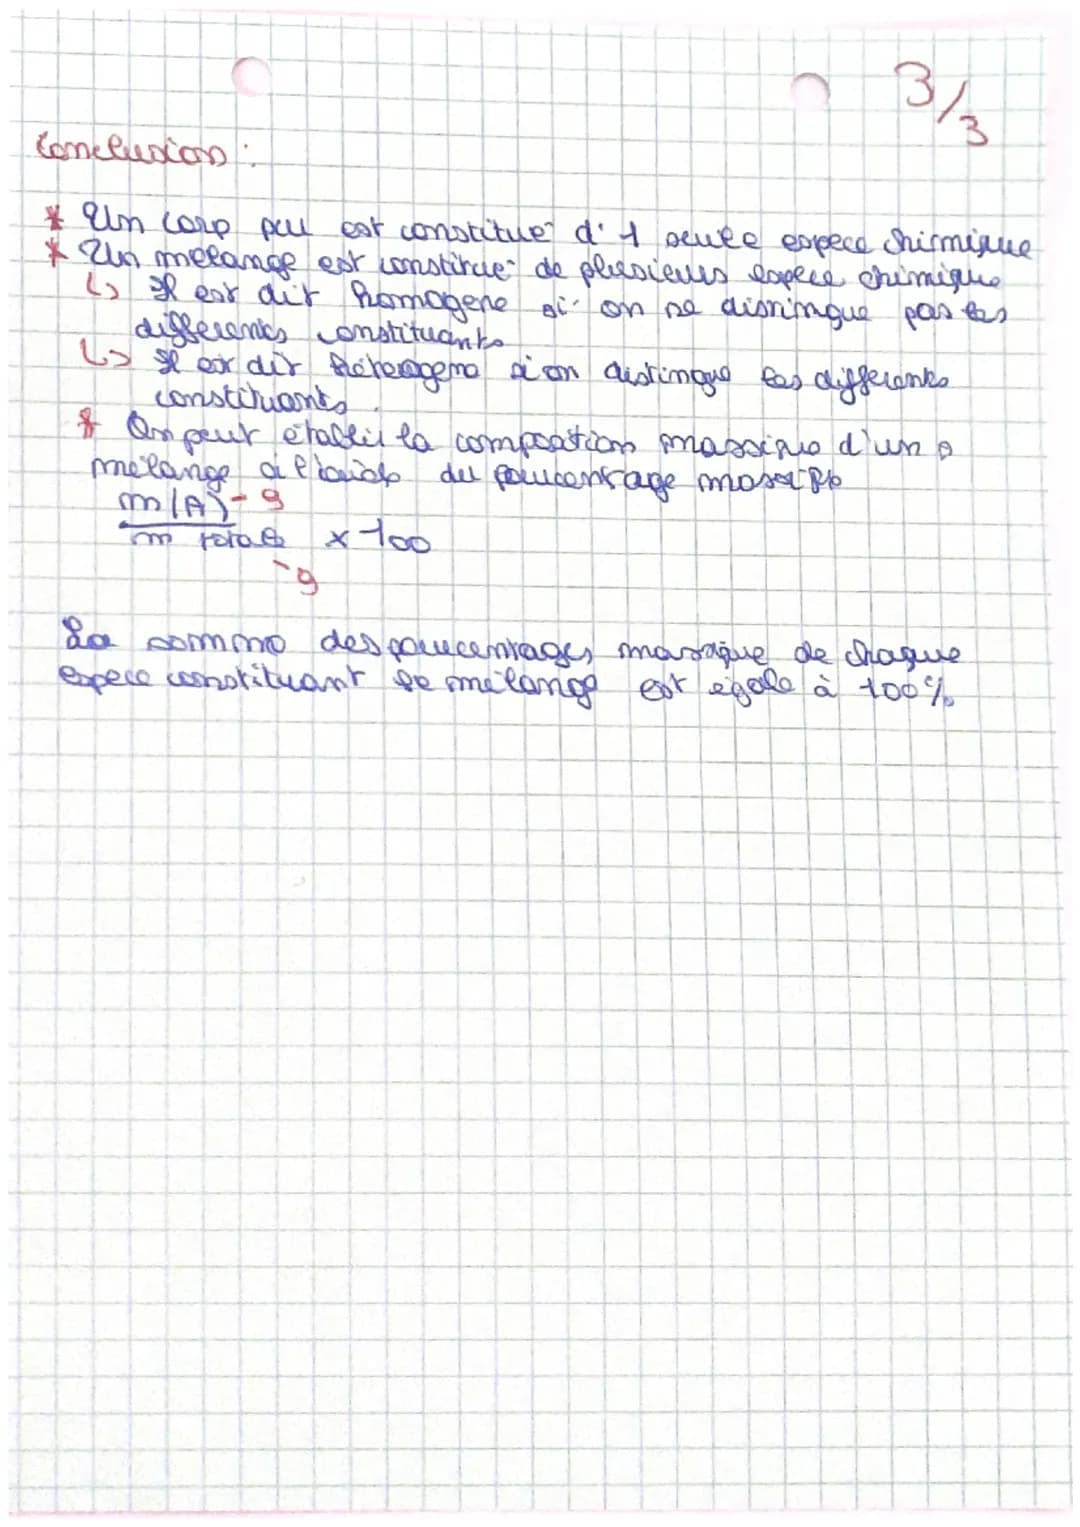 3/3
Conclusion :
* Un corp pur est constitué d'1 seule espece chimique
* Un melange est constitué de plusieurs espece chimique
↳ Il est dit homogene si on ne distingue pas les
differents constituants
↳ Il est dit héterogene si on distingue les differents
constituants.
* On peut établir la composition massique d'un
mélange à l'aide du pourcentage
m(A) - g
m totale x 100
- g
La somme des pourcentages massique de chaque
espece constituant le mélange est égale à 100%